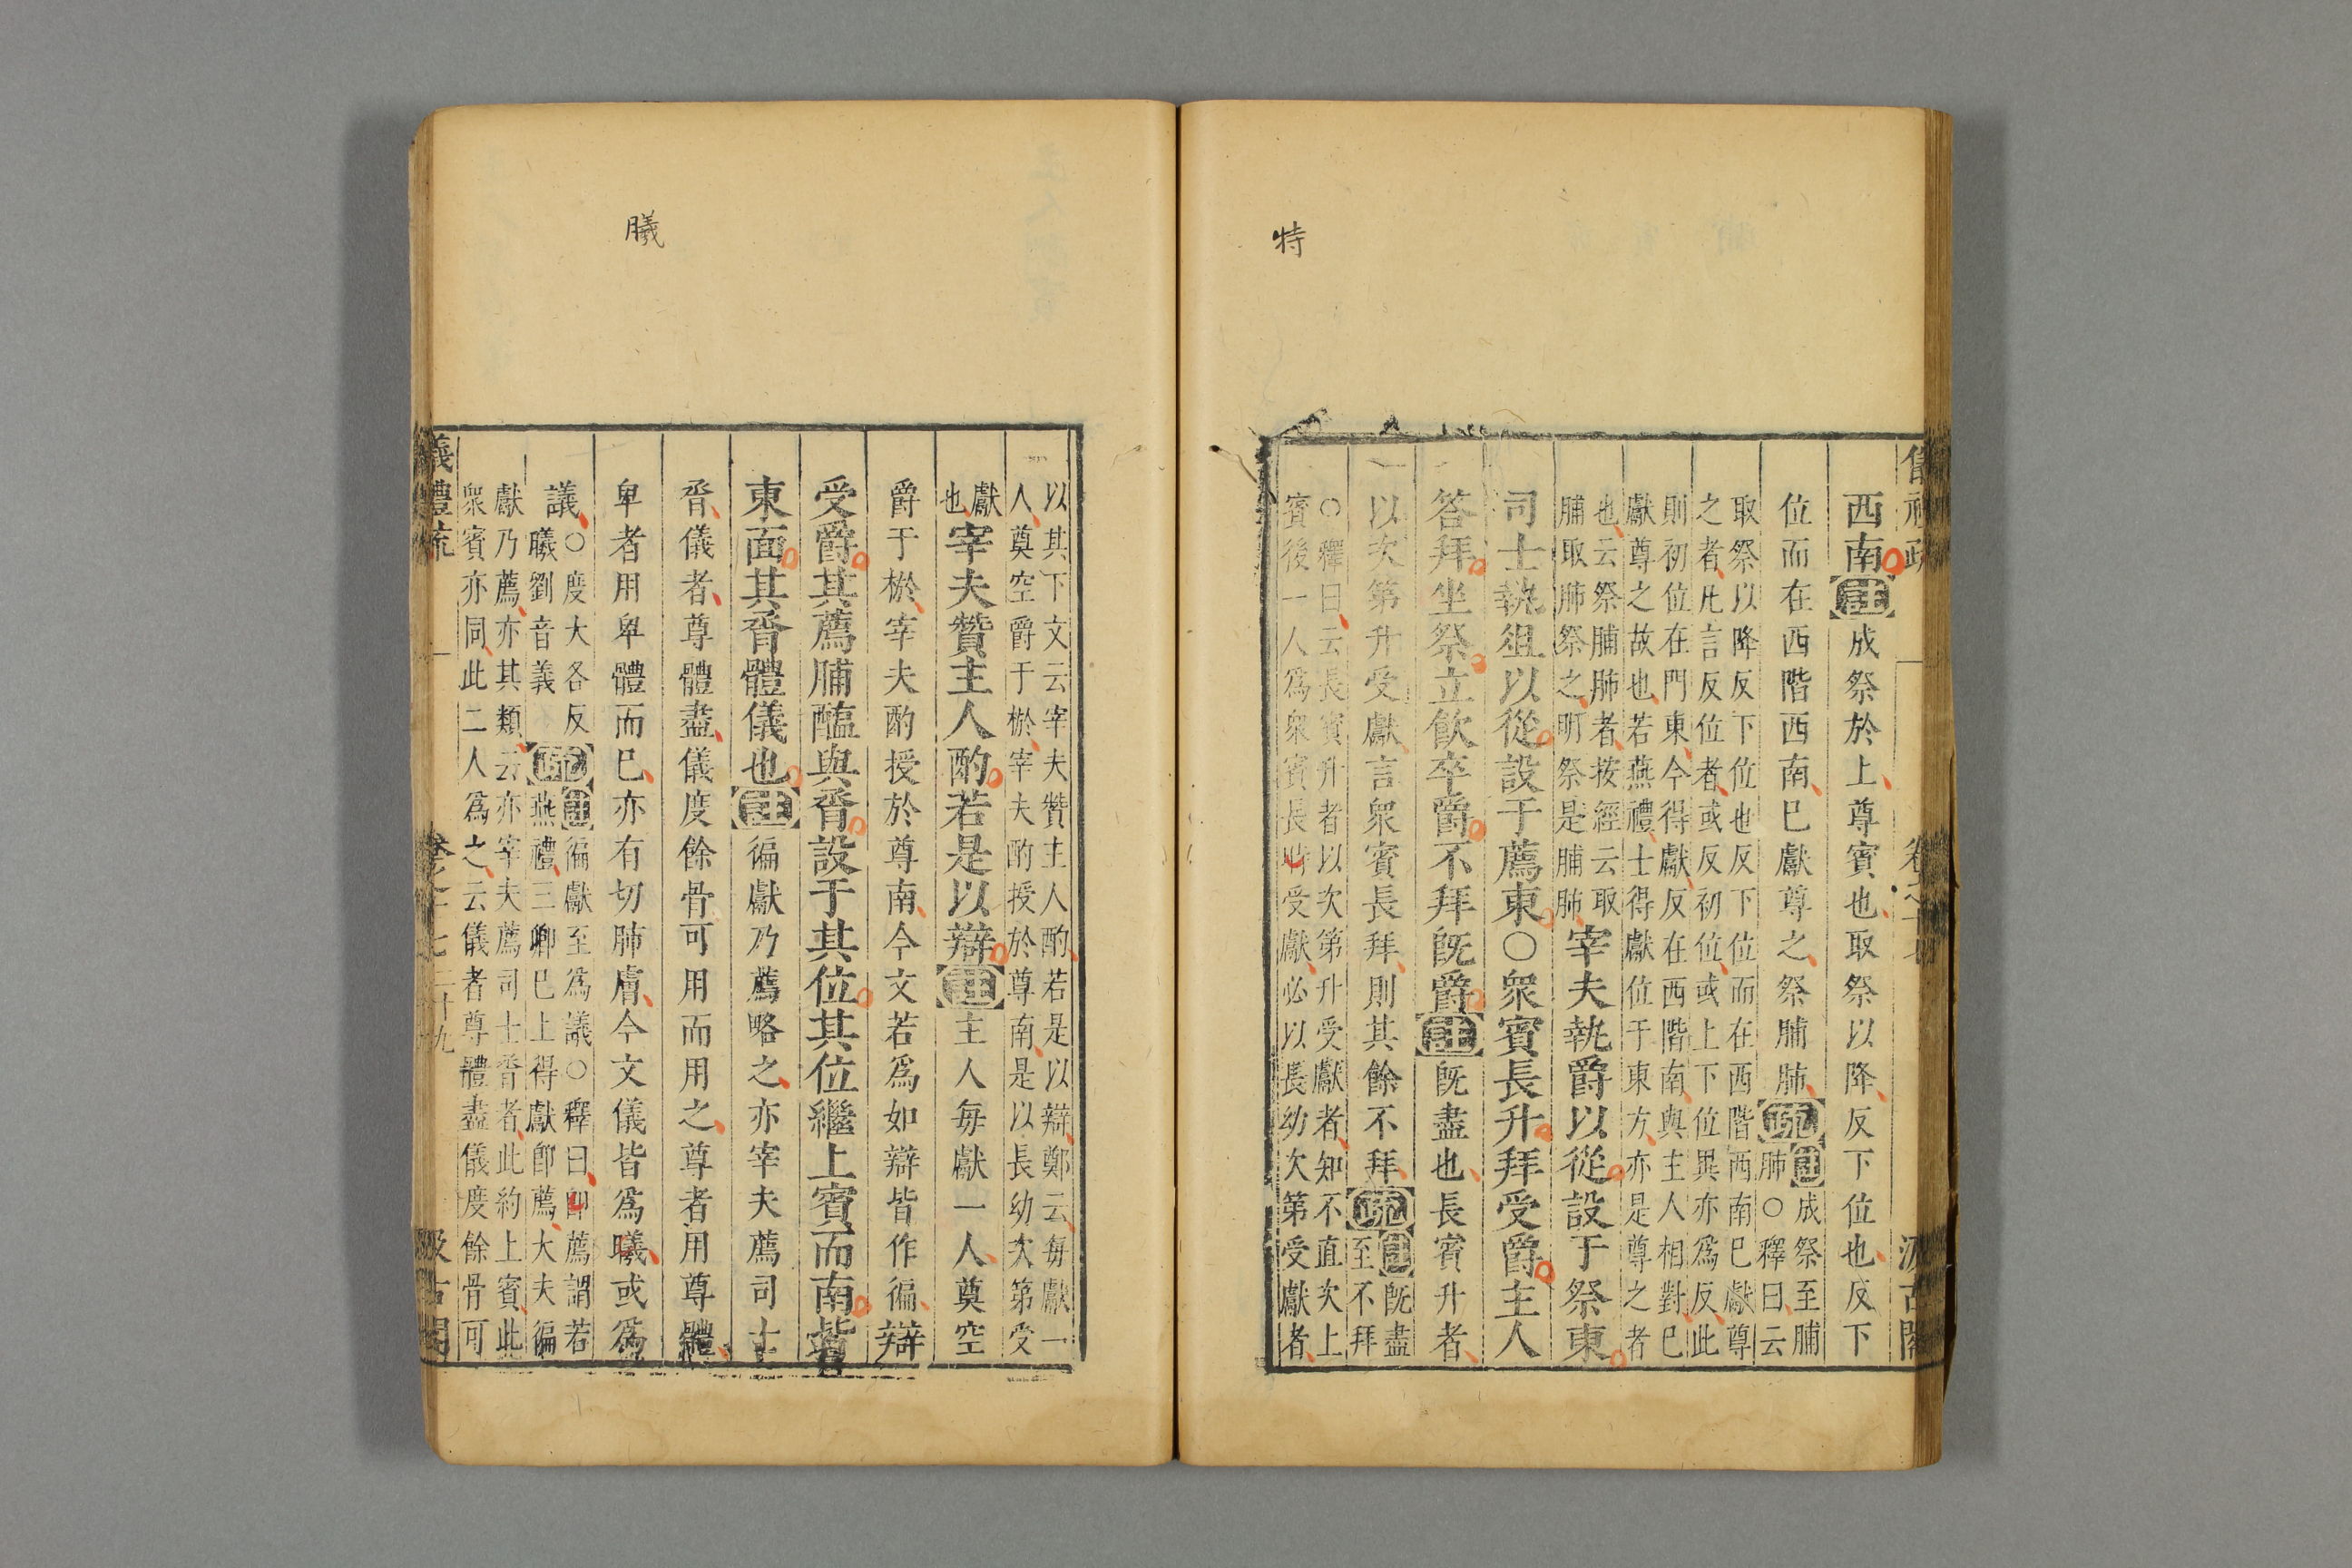 特
西南註成祭於上尊賓也取祭以降反下位也反下
位而在西階西南巳獻尊之祭脯肺疏註成祭至脯
肺○釋曰云
取祭以降反下位也反下位而在西階西南巳獻尊
之者凡言反位者或反初位或上下位異亦爲反此
則初位在門東今得獻反在西階南與主人相對巳
獻尊之故也若燕禮士得獻位于東方亦是尊之者
也云祭脯肺者按經云取
脯取肺祭之明祭是脯肺宰夫執爵以從設于祭東
司士執俎以從設于薦東○衆賓長升拜受爵主人
答拜坐祭立飲卒爵不拜旣爵註旣盡也長賓升者
以次第升受獻言衆賓長拜則其餘不拜疏註旣盡
至不拜
○釋曰云長賓升者以次第升受獻者知不直次上
賓後一人爲衆賓長 受獻必以長幼次第受獻者
曦
以其下文云宰夫贊主人酌若是以辯鄭云每獻一
人奠空爵于棜宰夫酌授於尊南是以長幼次第受
獻
也宰夫贊主人酌若是以辯註主人每獻一人奠空
爵于棜宰夫酌授於尊南今文若爲如辯皆作徧辯
受爵其薦脯醢與脀設于其位其位繼上賓而南皆
東面其脀體儀也註徧獻乃薦略之亦宰夫薦司士
脀儀者尊體盡儀度餘骨可用而用之尊者用尊體
卑者用卑體而巳亦有切肺膚今文儀皆爲曦或爲
議○度大各反
曦劉音義疏註徧獻至爲議○釋曰卽薦謂若
燕禮三卿巳上得獻卽薦大夫徧
獻乃薦亦其類云亦宰夫薦司士脀者此約上賓此
衆賓亦同此二人爲之云儀者尊體盡儀度餘骨可
儀禮疏 卷之十七 二十九 汲古閣